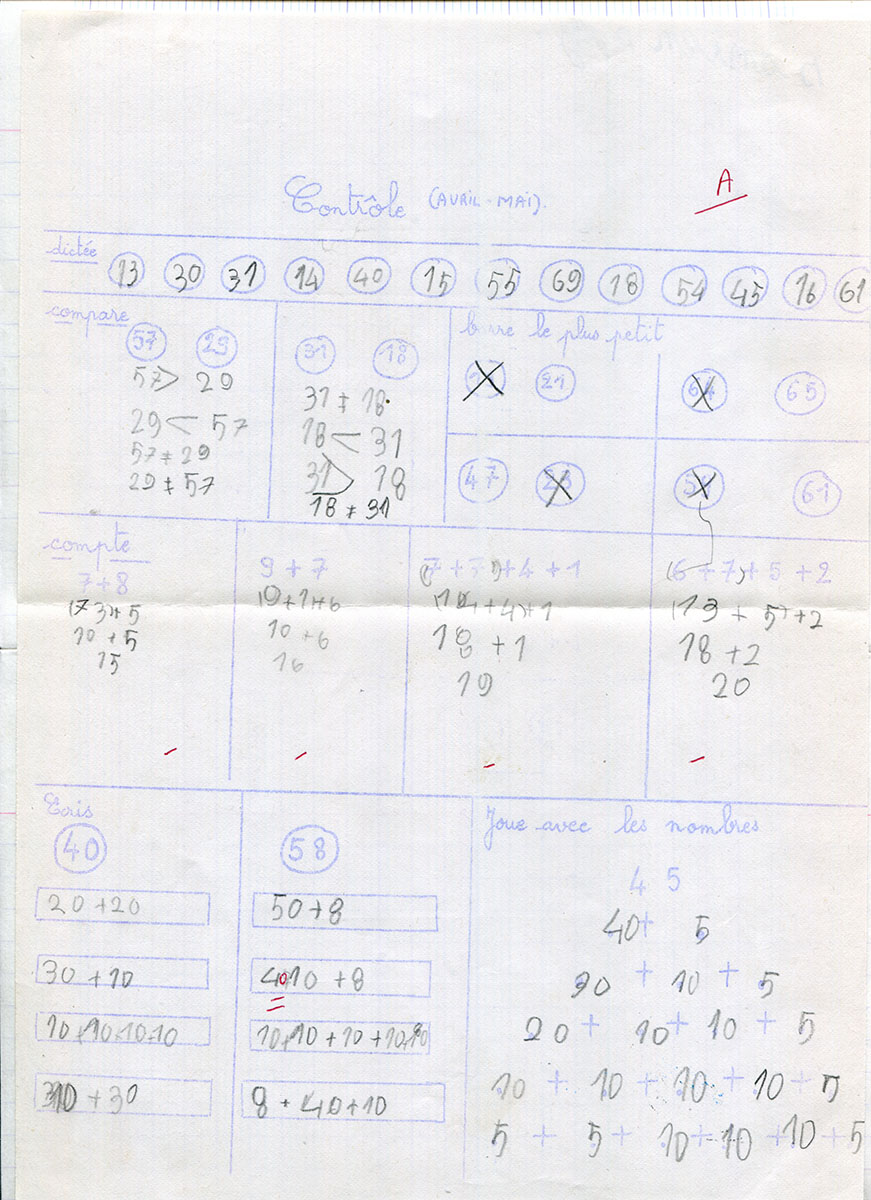 Contrôle (AVRIL-MAI).
A
dictée
13 30 31 14 40 15 55 69 18 54 45 16 61
compare
57 29
57 > 29
29 < 57
57 ≠ 29
29 ≠ 57
31 18
31 ≠ 18
18 < 31
31 > 18
18 ≠ 31
barre le plus petit
21
64 65
47
61
compte
7 + 8
(7 3)+5
10 + 5
15
9 + 7
(9+1)+6
10 + 6
16
(7 + 7) + 4 + 1
(14 + 4)+1
18 + 1
19
(6 + 7) + 5 + 2
(13 + 5)+2
18 + 2
20
Ecris
40
20 + 20
30 + 10
10+10+10+10
10 + 30
58
50 + 8
4010 + 8
10+10 + 10 + 10+10
8 + 40+10
Joue avec les nombres
4 5
40+ 5
30 + 10 + 5
20 + 10+ 10 + 5
10 + 10 + 10 + 10 + 5
5 + 5 + 10+10+10+5